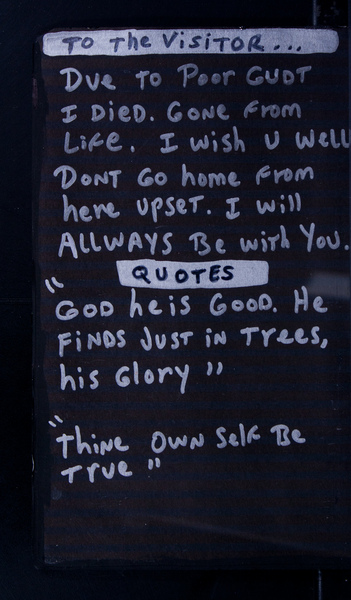 To The VisiTOR...
Due To Poor GUDT
I DieD. Gone From
LiFe. I wish U Well
DONT Go home From
here upseT. I will
ALLWAYS Be with You.
QUOTES
"GOD he is GOOD. He
FiNDS JusT in Trees,
his Glory"
"Thine OWN Self Be
True"